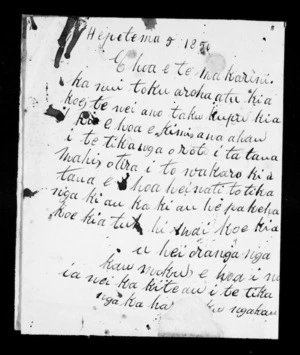 Hepetema 5 18
E hoa e te makarini
ka nui toku aroha atu kia
koe te nei ano taku kupu kia
koe e hoa e kimi ana ahau
i te tikanga o roto i ta taua
mahi otira i to wakaro kia
taua e hoa hei nati totika
nga ki au ka ki au he pakeha
koe kia tu hi koe kia
u hei oranga nga
kau moku e hoa i na
ia nei ka kitea au i te tika
nga ka ha ngakau